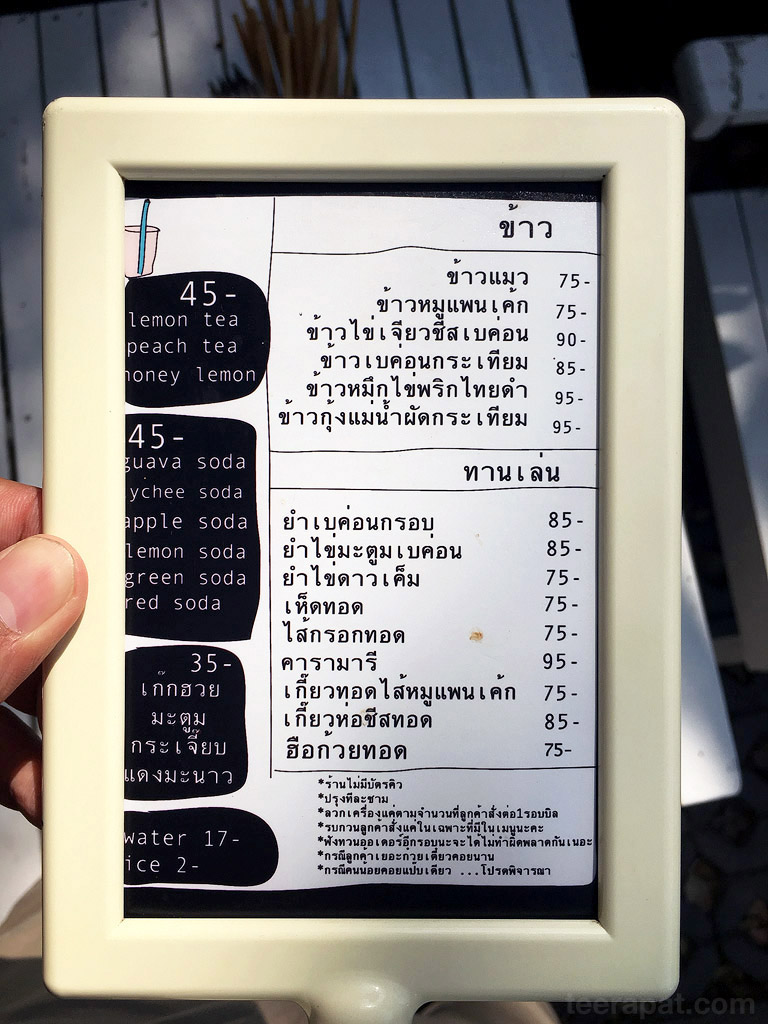 45-
lemon tea
peach tea
honey lemon
45-
guava soda
lychee soda
apple soda
lemon soda
green soda
red soda
35-
เก๊กฮวย
มะตูม
กระเจี๊ยบ
แดงมะนาว
water 17-
ice 2-
ข้าว
ข้าวแมว 75-
ข้าวหมูแพนเค้ก 75-
ข้าวไข่เจียวชีสเบค่อน 90-
ข้าวเบค่อนกระเทียม 85-
ข้าวหมึกไข่พริกไทยดำ 95-
ข้าวกุ้งแม่น้ำผัดกระเทียม 95-
ทานเล่น
ยำเบค่อนกรอบ 85-
ยำไข่มะตูมเบค่อน 85-
ยำไข่ดาวเค็ม 75-
เห็ดทอด 75-
ไส้กรอกทอด 75-
คารามารี 95-
เกี๊ยวทอดไส้หมูแพนเค้ก 75-
เกี๊ยวห่อชีสทอด 85-
ฮือก้วยทอด 75-
*ร้านไม่มีบัตรคิว
*ปรุงทีละชาม
*ลวกเครื่องแค่ตามจำนวนที่ลูกค้าสั่งต่อ1รอบบิล
*รบกวนลูกค้าสั่งแค่ในเฉพาะที่มีในเมนูนะคะ
*ฟังทวนออเดอร์อีกรอบนะจะได้ไม่ทำผิดพลาดกันเนอะ
*กรณีลูกค้าเยอะก๋วยเตี๋ยวคอยนาน
*กรณีคนน้อยคอยแป๊บเดียว ...โปรดพิจารณา
teerapat.com